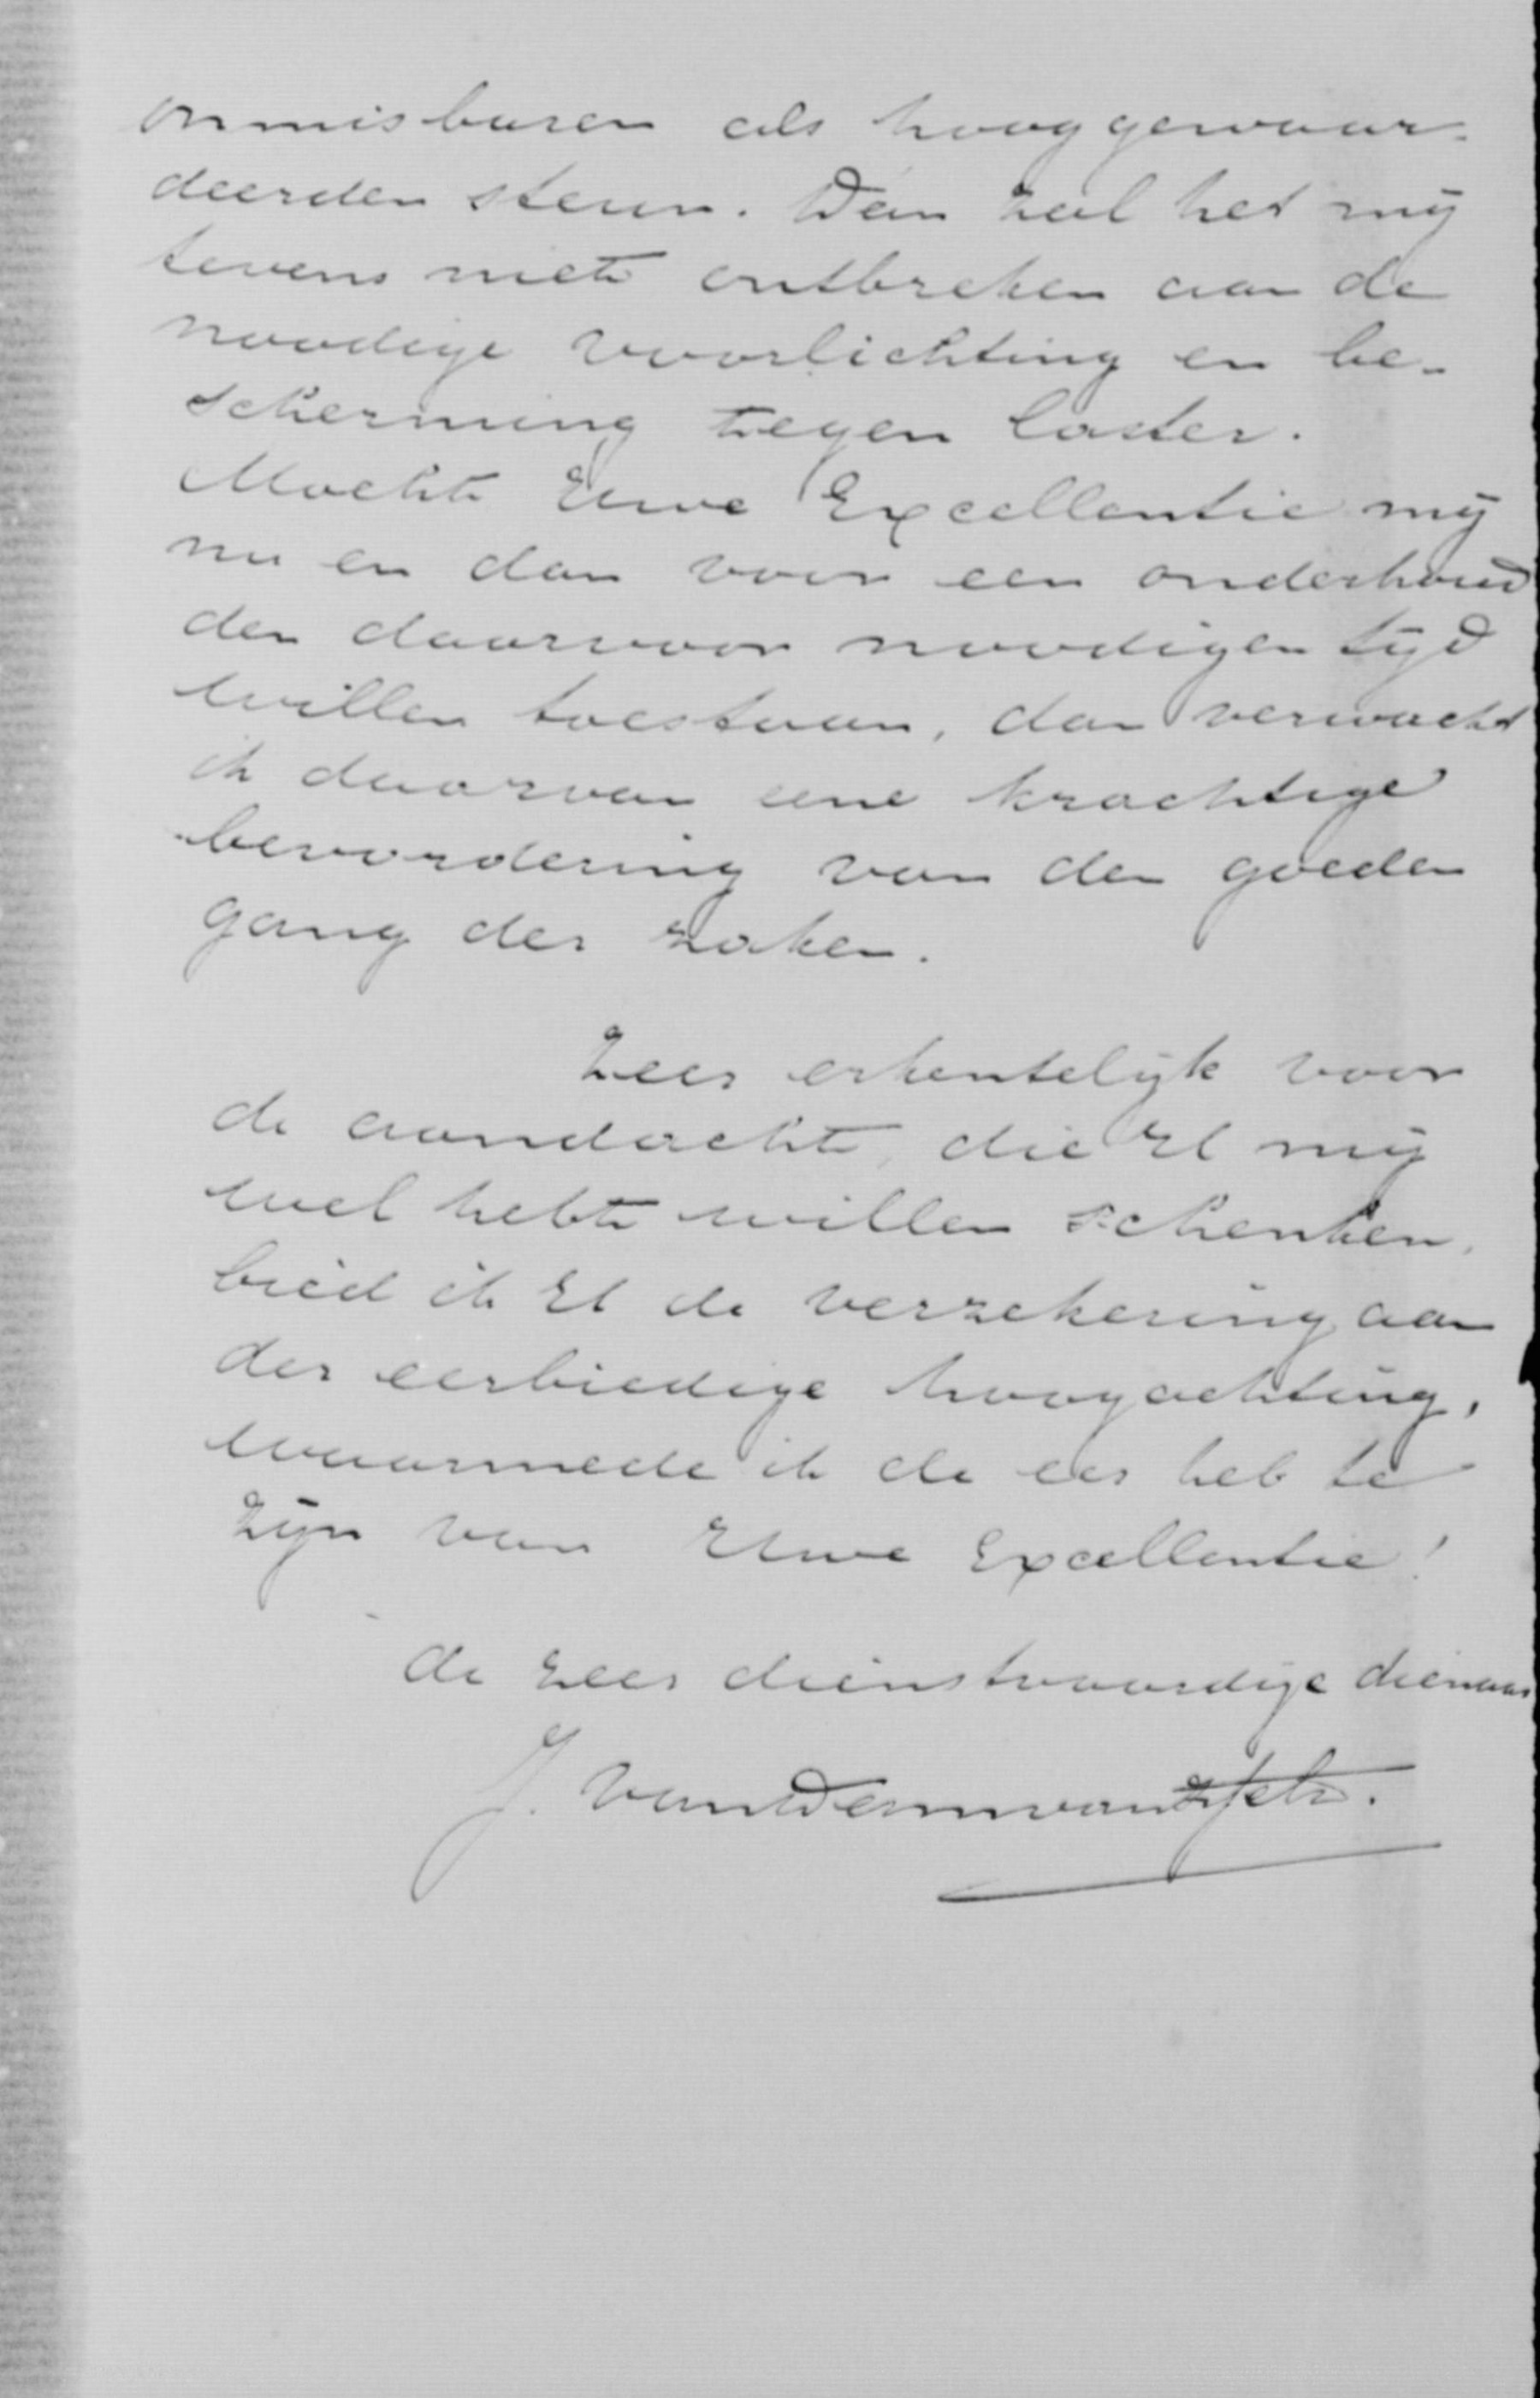 onmisbaren als hooggewaar-
deerden steun. Dan zal het mij
tevens niet ontbreken aan de
noodige voorlichting en be-
scherming tegen laster.
Mocht Uwe Excellentie mij
nu en dan voor een onderhoud
den daarvoor noodigen tijd
willen toestaan, dan verwacht
ik daarvan eene krachtige
bevordering van den goeden
gang der zaken.
Zeer erkentelijk voor
de aandacht, die U mij
wel hebt willen schenken,
bied ik U de verzekering aan
der eerbiedige hoogachting,
waarmede ik de eer heb te
zijn van Uwe Excellentie!
de zeer dienstvaardige dienaar
J. van